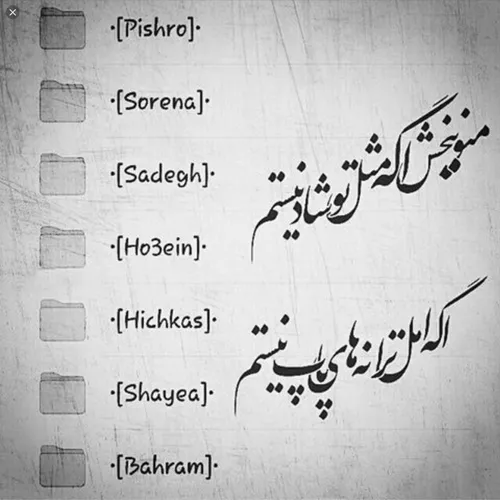 ·[Pishro]·
·[Sorena]·
·[Sadegh]·
·[Ho3ein]·
·[Hichkas]·
·[Shayea]·
·[Bahram]·
منو ببخش اگه مثل تو شاد نیستم
اگه اهل ترانه های پاپ نیستم